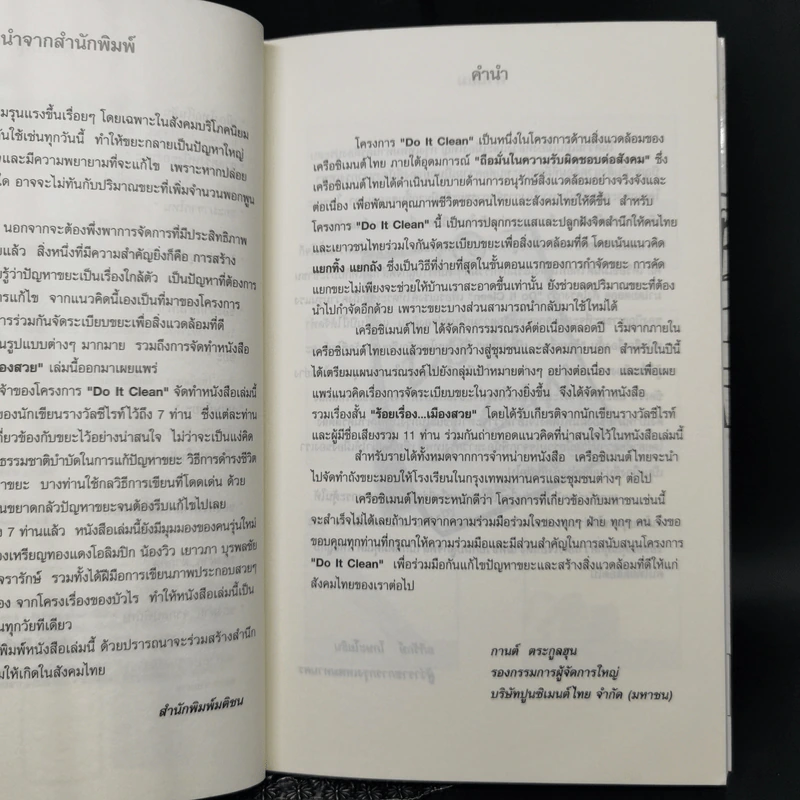 นำจากสำนักพิมพ์
มรุนแรงขึ้นเรื่อยๆ โดยเฉพาะในสังคมบริโภคนิยม
นใช้เช่นทุกวันนี้ ทำให้ขยะกลายเป็นปัญหาใหญ่
งและมีความพยายามที่จะแก้ไข เพราะหากปล่อย
ใด อาจจะไม่ทันกับปริมาณขยะที่เพิ่มจำนวนพอกพูน
นอกจากจะต้องพึ่งพาการจัดการที่มีประสิทธิภาพ
ยแล้ว สิ่งหนึ่งที่มีความสำคัญยิ่งก็คือ การสร้าง
ยรู้ว่าปัญหาขยะเป็นเรื่องใกล้ตัว เป็นปัญหาที่ต้องการ
รแก้ไข จากแนวคิดนี้เองเป็นที่มาของโครงการ
การร่วมกันจัดระเบียบขยะเพื่อสิ่งแวดล้อมที่ดี
นรูปแบบต่างๆ มากมาย รวมถึงการจัดทำหนังสือ
องสวย" เล่มนี้ออกมาเผยแพร่
จ้าของโครงการ "Do It Clean" จัดทำหนังสือเล่มนี้
ของนักเขียนรางวัลซีไรท์ไว้ถึง 7 ท่าน ซึ่งแต่ละท่าน
กี่ยวข้องกับขยะไว้อย่างน่าสนใจ ไม่ว่าจะเป็นแง่คิด
ธรรมชาติบำบัดในการแก้ปัญหาขยะ วิธีการดำรงชีวิต
ขยะ บางท่านใช้กลวิธีการเขียนที่โดดเด่น ด้วย
นขยาดกลัวปัญหาขยะจนต้องรีบแก้ไขไปเลย
ง 7 ท่านแล้ว หนังสือเล่มนี้ยังมีมุมมองของคนรุ่นใหม่
องเหรียญทองแดงโอลิมปิก น้องวิว เยาวภา บุรพลชัย
จรารักษ์ รวมทั้งได้ฝีมือการเขียนภาพประกอบสวยๆ
อง จากโครงเรื่องของบัวไร ทำให้หนังสือเล่มนี้เป็น
นทุกวัยทีเดียว
พิมพ์หนังสือเล่มนี้ ด้วยปรารถนาจะร่วมสร้างสำนึก
มให้เกิดในสังคมไทย
สำนักพิมพ์มติชน
คำนำ
โครงการ "Do It Clean" เป็นหนึ่งในโครงการด้านสิ่งแวดล้อมของ
เครือซิเมนต์ไทย ภายใต้อุดมการณ์ "ถือมั่นในความรับผิดชอบต่อสังคม" ซึ่ง
เครือซิเมนต์ไทยได้ดำเนินนโยบายด้านการอนุรักษ์สิ่งแวดล้อมอย่างจริงจังและ
ต่อเนื่อง เพื่อพัฒนาคุณภาพชีวิตของคนไทยและสังคมไทยให้ดีขึ้น สำหรับ
โครงการ "Do It Clean" นี้ เป็นการปลุกกระแสและปลูกฝังจิตสำนึกให้คนไทย
และเยาวชนไทยร่วมใจกันจัดระเบียบขยะเพื่อสิ่งแวดล้อมที่ดี โดยเน้นแนวคิด
แยกทิ้ง แยกถัง ซึ่งเป็นวิธีที่ง่ายที่สุดในขั้นตอนแรกของการกำจัดขยะ การคัด
แยกขยะไม่เพียงจะช่วยให้บ้านเราสะอาดขึ้นเท่านั้น ยังช่วยลดปริมาณขยะที่ต้อง
นำไปกำจัดอีกด้วย เพราะขยะบางส่วนสามารถนำกลับมาใช้ใหม่ได้
เครือซิเมนต์ไทย ได้จัดกิจกรรมรณรงค์ต่อเนื่องตลอดปี เริ่มจากภายใน
เครือซิเมนต์ไทยเองแล้วขยายวงกว้างสู่ชุมชนและสังคมภายนอก สำหรับในปีนี้
ได้เตรียมแผนงานรณรงค์ไปยังกลุ่มเป้าหมายต่างๆ อย่างต่อเนื่อง และเพื่อเผย
แพร่แนวคิดเรื่องการจัดระเบียบขยะในวงกว้างยิ่งขึ้น จึงได้จัดทำหนังสือ
รวมเรื่องสั้น "ร้อยเรื่อง...เมืองสวย" โดยได้รับเกียรติจากนักเขียนรางวัลซีไรท์
และผู้มีชื่อเสียงรวม 11 ท่าน ร่วมกันถ่ายทอดแนวคิดที่น่าสนใจไว้ในหนังสือเล่มนี้
สำหรับรายได้ทั้งหมดจากการจำหน่ายหนังสือ เครือซิเมนต์ไทยจะนำ
ไปจัดทำถังขยะมอบให้โรงเรียนในกรุงเทพมหานครและชุมชนต่างๆ ต่อไป
เครือซิเมนต์ไทยตระหนักดีว่า โครงการที่เกี่ยวข้องกับมหาชนเช่นนี้
จะสำเร็จไม่ได้เลยถ้าปราศจากความร่วมมือร่วมใจของทุกๆ ฝ่าย ทุกๆ คน จึงขอ
ขอบคุณทุกท่านที่กรุณาให้ความร่วมมือและมีส่วนสำคัญในการสนับสนุนโครงการ
"Do It Clean" เพื่อร่วมมือกันแก้ไขปัญหาขยะและสร้างสิ่งแวดล้อมที่ดีให้แก่
สังคมไทยของเราต่อไป
กานต์ ตระกูลฮุน
รองกรรมการผู้จัดการใหญ่
บริษัทปูนซิเมนต์ไทย จำกัด (มหาชน)